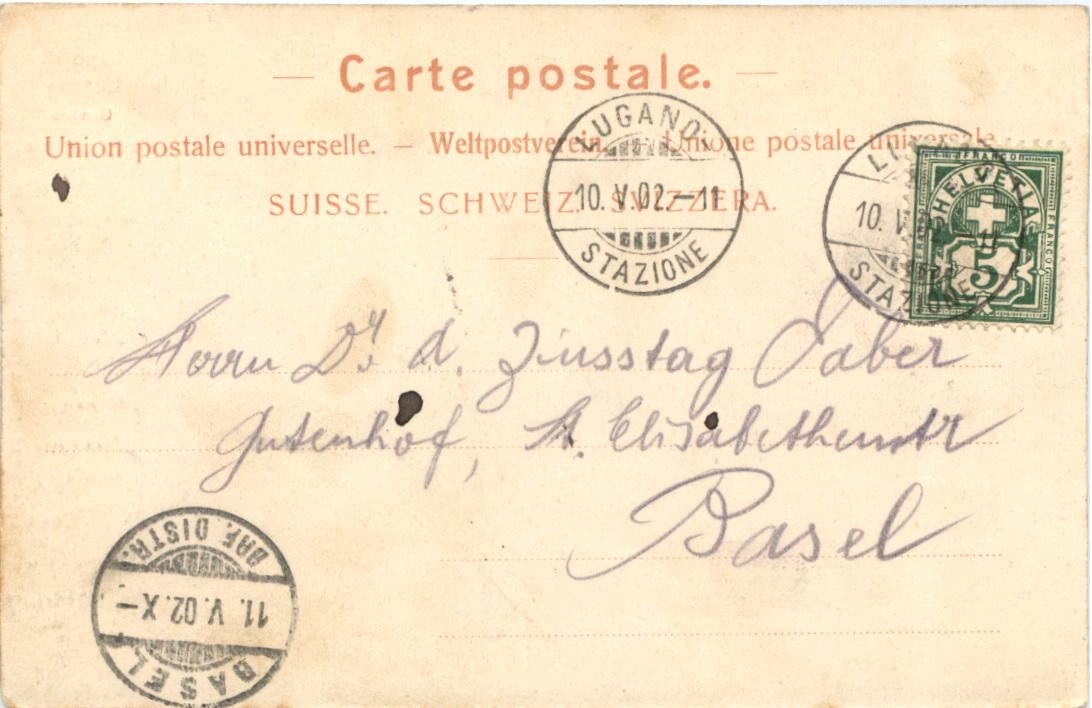 Carte postale.
Union postale universelle. — Weltpostverein. — Unione postale universale.
SUISSE. SCHWEIZ. SVIZZERA.
LUGANO
10. V.02.–11
STAZIONE
10. V
11
STAZIONE
FRANCO
HELVETIA
FRANCO
FRANCO
5
Herrn Dr. A. Zinsstag Faber
Gutenhof, St. Elisabethenstr
Basel
BRF. DISTR.
11. V. 02. X–
BASEL